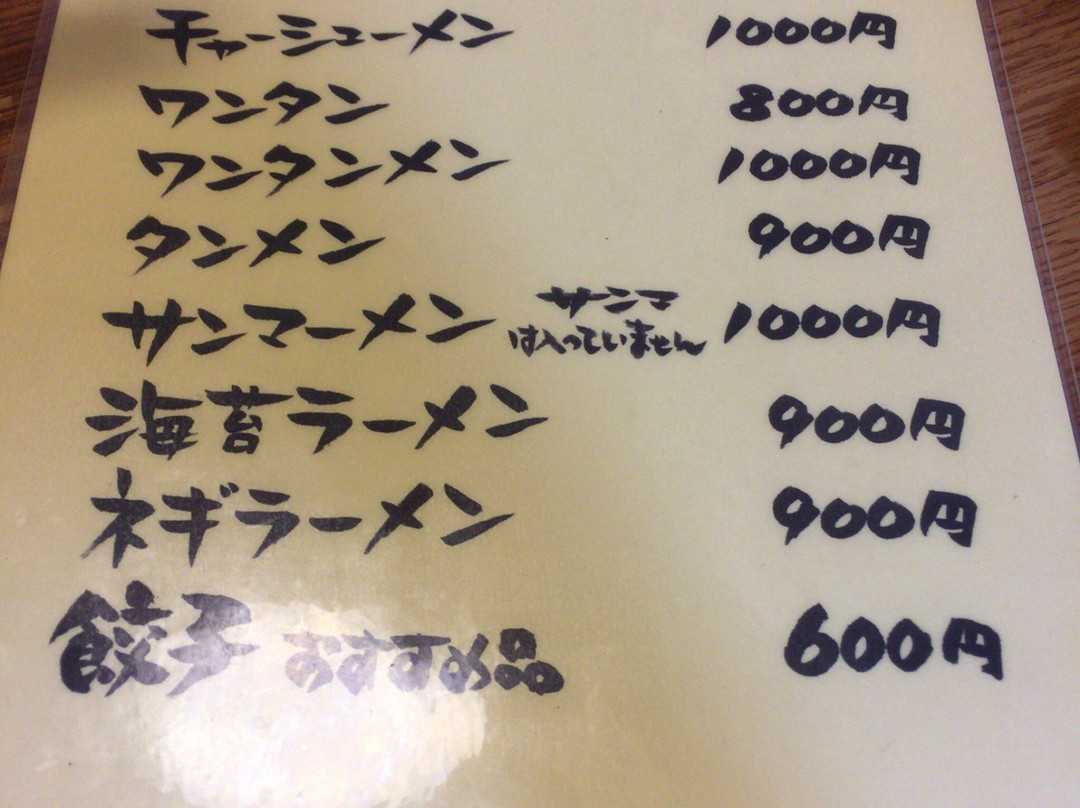 チャーシューメン 1000円
ワンタン 800円
ワンタンメン 1000円
タンメン 900円
サンマーメン サンマは入っていません 1000円
海苔ラーメン 900円
ネギラーメン 900円
餃子 おすすめ品 600円